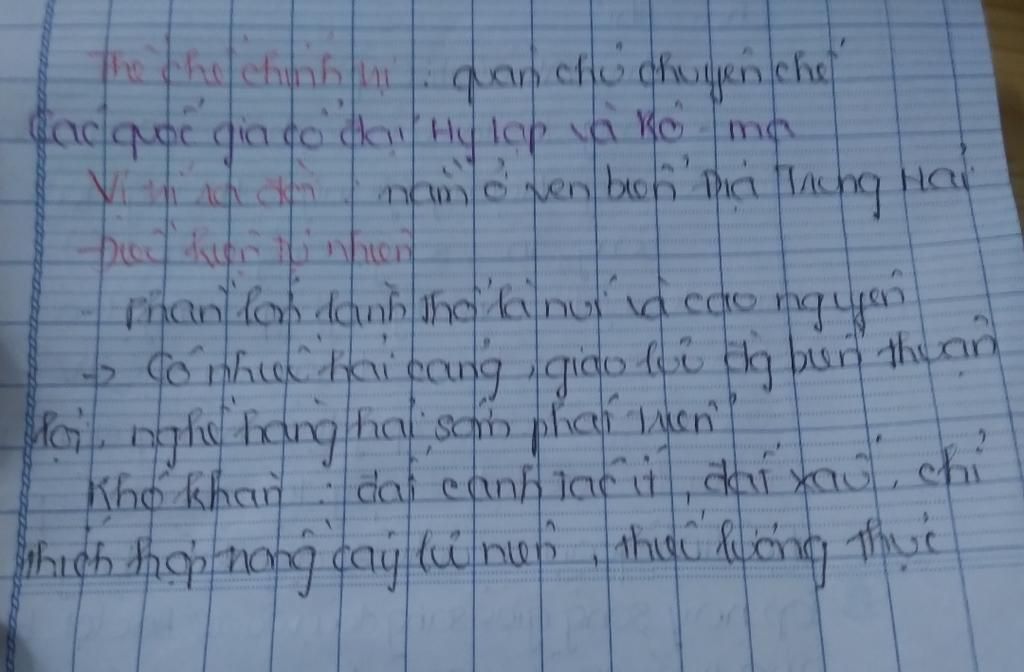 Thể chế chính trị : quân chủ chuyên chế
Các quốc gia cổ đại Hy Lạp và Rô - ma
Vị trí địa : nằm ở ven biển Địa Trung Hải
Điều kiện tự nhiên
- Phần lớn lãnh thổ là núi và cao nguyên
-> Có nhiều hải cảng, giao lưu bằng buôn thuận
lợi, nghề hàng hải sớm phát triển
Khó khăn : đất canh tác ít, đất xấu, chỉ
thích hợp trồng cây lưu niên, thiếu lương thực